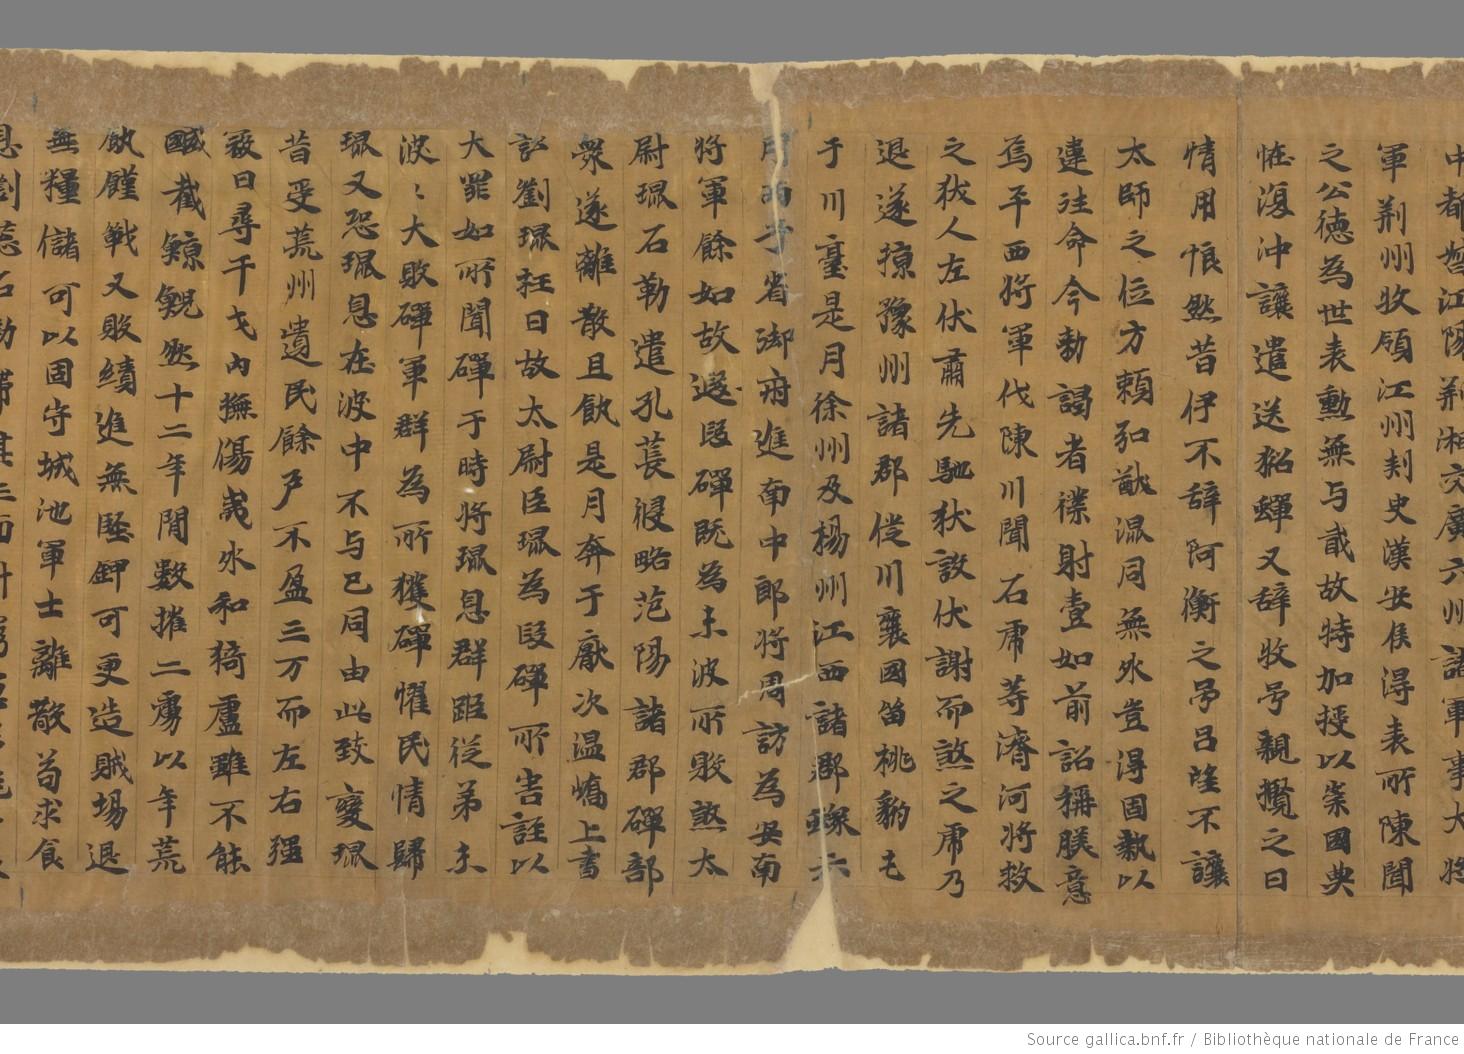 中都督江陽荆湘交廣六州諸軍事大將
軍荆州牧領江州刾史漢安侯得表所陳聞
之公德為世表勳無与貳故特加授以崇國典
恠復沖讓遣送貂蟬又辞收予親攬之曰
情用悵然昔伊不辞阿衡之号吕望不讓
太師之位方賴弘猷混同無外豈得固執以
違往命今勑謁者襍射壹如前詔稱朕意
焉平西將軍伐陳川聞石虎等濟河將救
之狄人左伏肅先馳狄設伏謝而煞之虎乃
退遂掠豫州諸郡徙川襄國留桃豹屯
于川臺是月徐州及楊州江西諸郡蝗六
月丙子省御府進南中郎將周訪為安南
將軍餘如故遼段磾既為末波所敗煞太
尉琨石勒遣孔萇侵略范陽諸郡磾部
衆遂離散且飢是月奔于厥次温嶠上書
訟劉琨枉曰故太尉臣琨為段磾所害誣以
大罪如所聞磾于時將琨息群距從弟末
波〻大敗磾軍群為所獲磾懼民情歸
琨又恐琨息在波中不与己同由此致變琨
昔受荒州遺民餘户不盈三万而左右强
寇日尋干戈内撫傷夷外和猗盧雖不能
馘截鯨鯢然十二年間數摧二虜以年荒
飢饉戰又敗績進無堅鉀可更造賊場退
無糧儲可以固守城池軍士離散苟求食